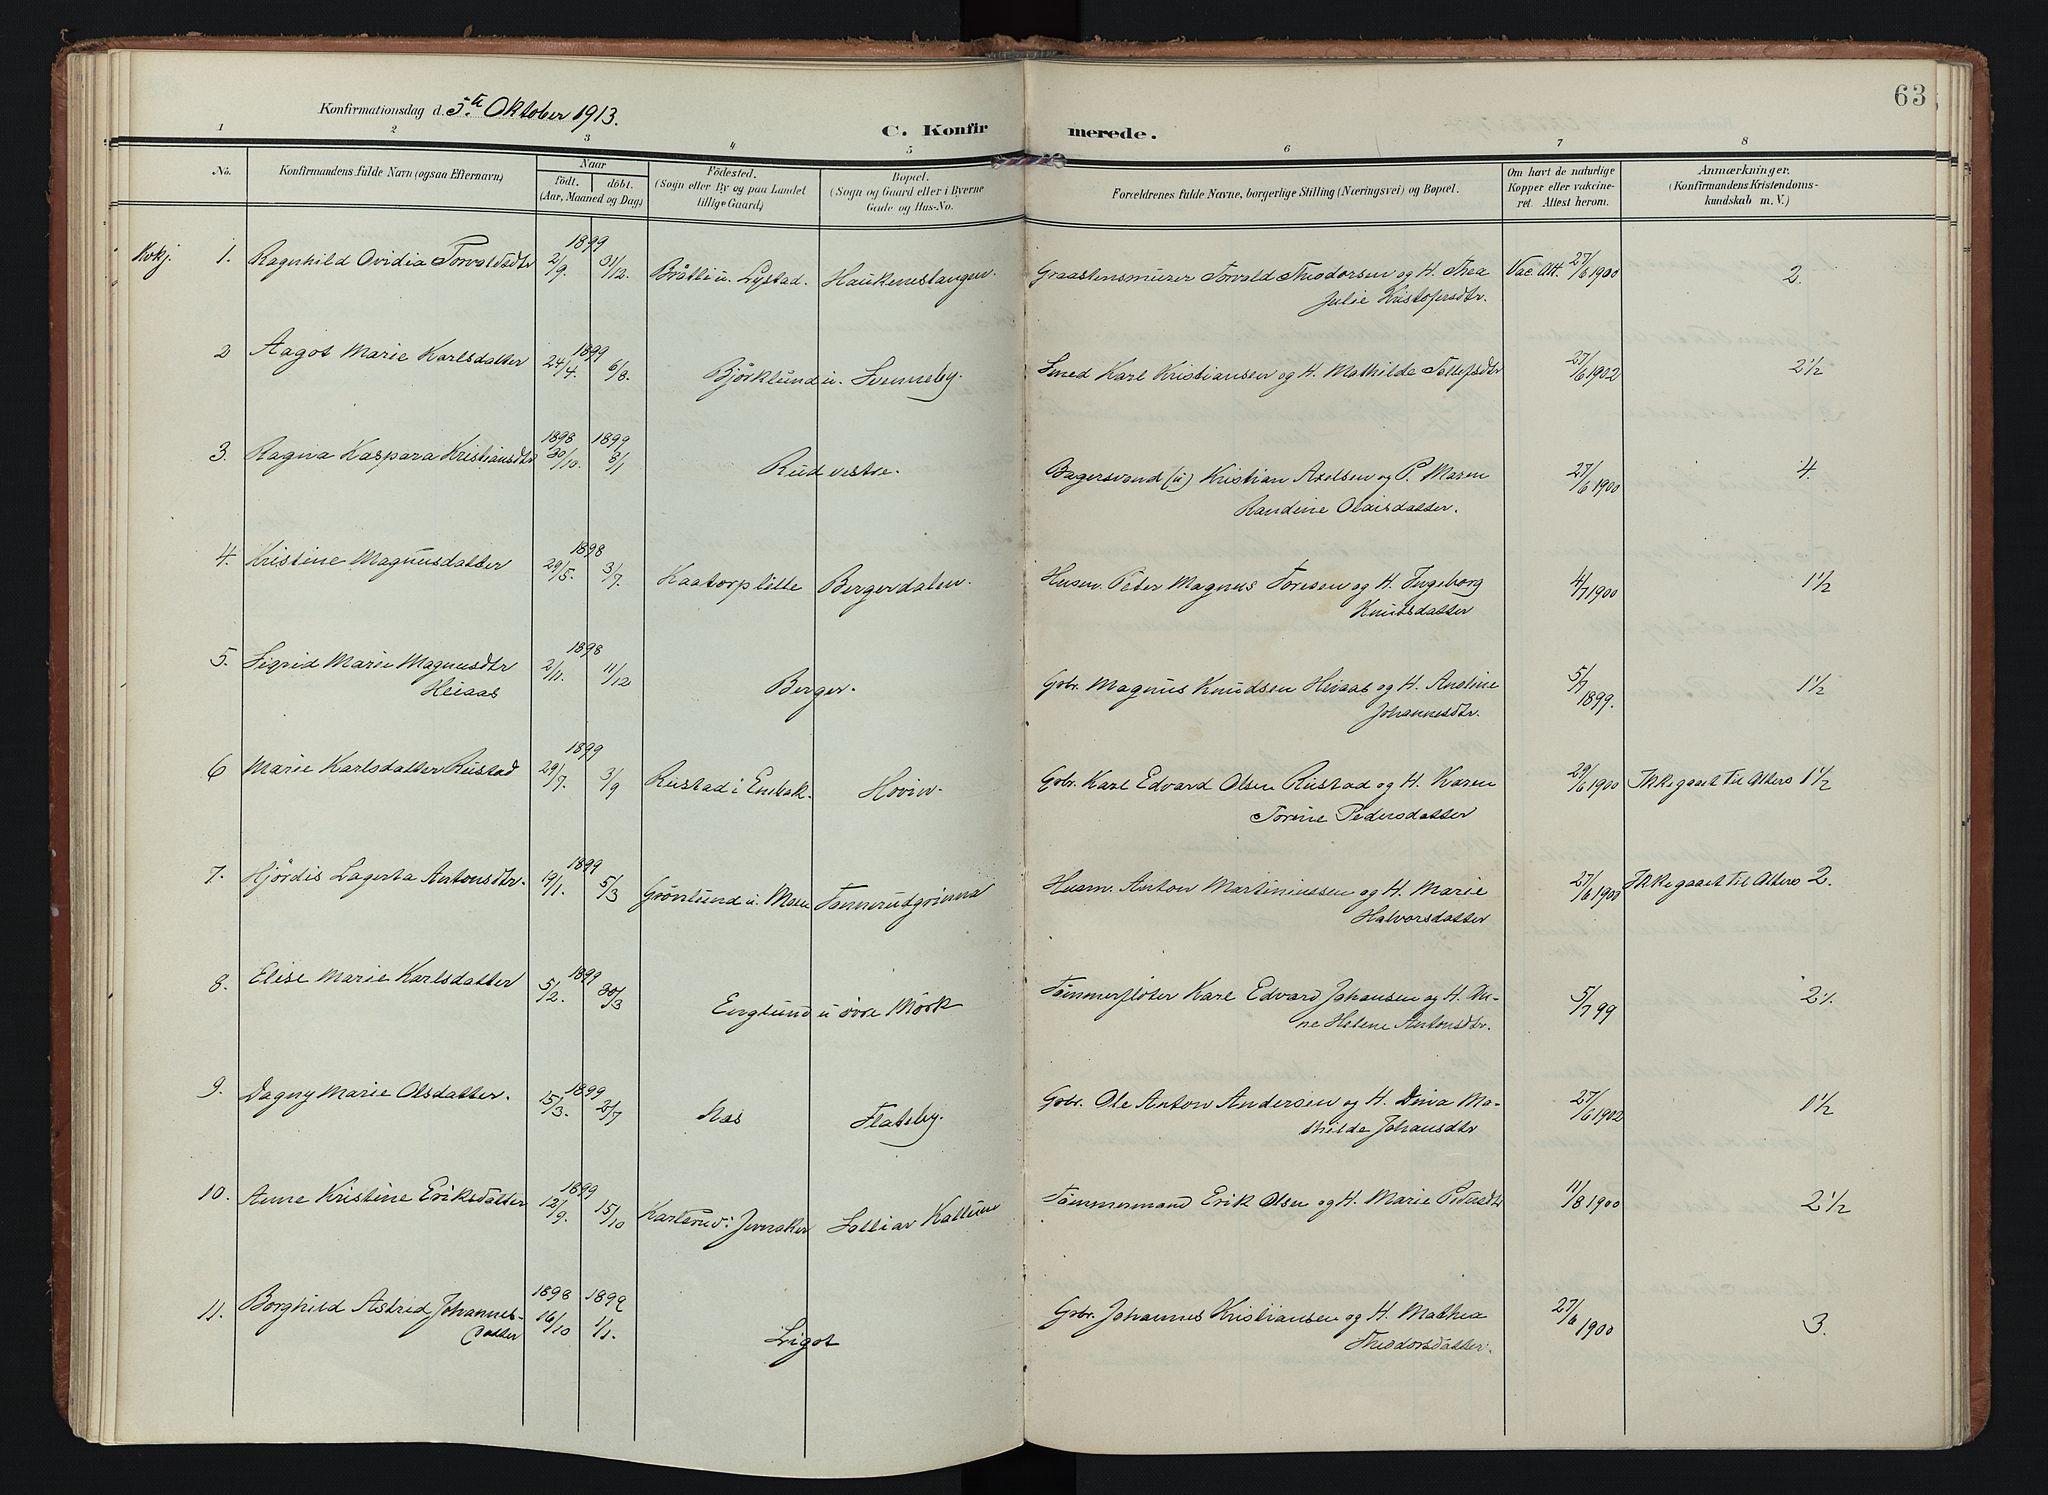 63
Konfirmationsdag d. 5te Oktober 1913.
C. Konfirmerede.
1 2 3 4 5 6 7 8
No. Konfirmandens fulde Navn (ogsaa Efternavn) Naar født. døbt. (Aar, Maaned og Dag) Fødested. (Sogn eller By og paa Landet tillige Gaard) Bopæl. (Sogn og Gaard eller i Byerne Gade og Hus-No. Forældrenes fulde Navne, borgerlige Stilling (Næringsvei) og Bopæl. Om havt de naturlige Kopper eller vakcineret. Attest herom. Anmærkninger. (Konfirmandens Kristendomskundskab m. V.)
1. Ragnhild Ovidia Torvaldsdtr 1899 2/9. 31/12. Bråtli u. Lystad. Haukenestangen. Graastensmurer Torvald Theodorsen og H. Thea Vac. Att. 27/6 1900 2.
Julie Kristofersdtr.
2 Aagot Marie Karlsdatter 1899 24/4. 6/8. Bjørklund u. Svenneby. Smed Karl Kristiansen og H. Mathilde Tollefsdtr 27/6 1902 2 1/2
3. Ragna Kaspara Kristiansdtr 1898 30/10. 1899 8/1 Rud vestre. Bagersvend (u) Kristian Axelsen og P. Maren 27/6 1900 4.
Randine Olaisdatter.
4. Kristine Magnusdatter 1898 29/5. 3/7. Kaatorp lille Bergerdalen. Husm. Peter Magnus Toresen og H. Ingeborg 4/7 1900 1 1/2
Knutsdatter
5. Sigrid Marie Magnusdtr 1898 2/11. 11/12 Berger. Gbr. Magnus Knudsen Heiaas og H. Anstine 5/7 1899. 1 1/2
Heiaas
Johannesdtr.
6 Marie Karlsdatter Rustad 1899 29/7. 3/9 Rustad i Enebak. Hovin. Gbr. Karl Edvard Olsen Rustad og H. Karen 29/6 1900 Ikke gaaet til Alters 1 1/2
Torine Pedersdatter
7. Hjørdis Lagerta Antonsdtr. 1899 19/1. 5/3 Grønlund u. Moen Tannerudgrinna Husm. Anton Martiniussen og H. Marie 27/6 1900 Ikke gaaet til Alters 2.
Halvorsdatter
8. Elise Marie Karlsdatter 1899 5/2. 30/3 Englund u øvre Mörk Tømmerfløter Karl Edvard Johansen og H. An- 5/7 99 2 1/2
ne Helene Antonsdtr.
9. Dagny Marie Olsdatter. 1899 15/3. 2/7 Nas Flateby. Gbr. Ole Anton Andersen og H. Dina Ma- 27/6 1902 1 1/2
thilde Johansdtr
10. Anne Kristine Eriksdatter 1899 12/9. 15/10 Karlsrud i Jevnaker Kallum Tømmermand Erik Olsen og H. Marie Petersdtr 11/8 1900 2 1/2
11. Borghild Astrid Johannes- 1898 16/10 1899 1/1. Ligot Gbr. Johannes Kristiansen og H. Mathea 27/6 1900 3.
datter
Theodorsdatter.